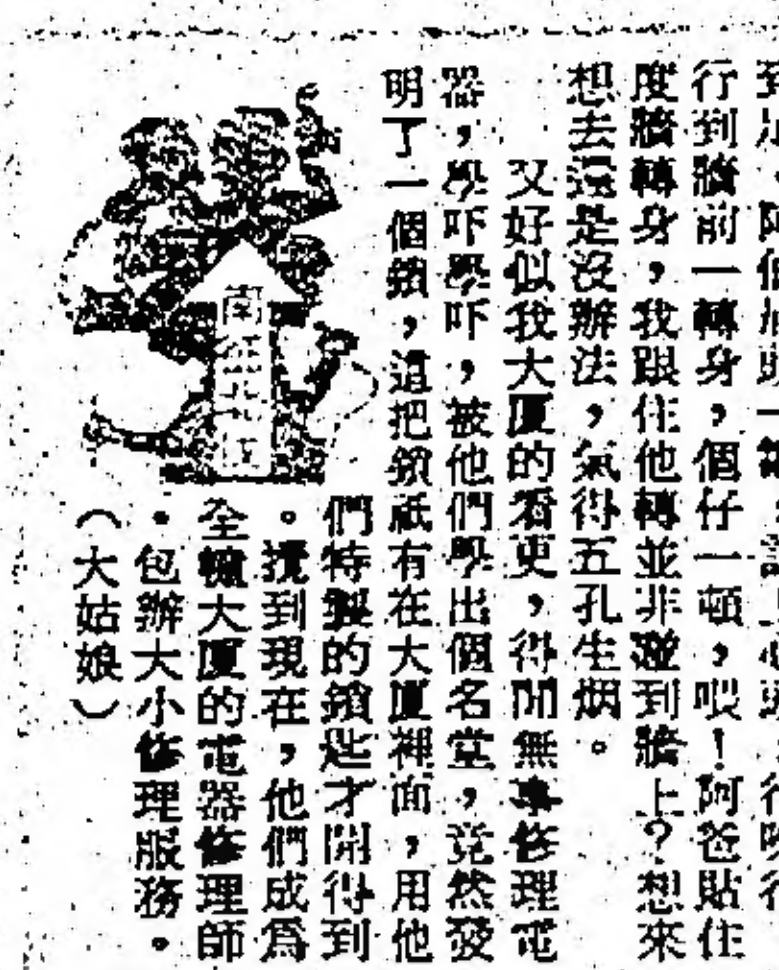 行到牆前一轉身，個仔一頓，喂！阿爸貼住
度牆轉身，我跟住他轉並非碰到牆上？想來
想去還是沒辦法，氣得五孔生烟。
又好似我大厦的看更，得閒無事修理電
器，學吓學吓，被他們學出個名堂，竟然發
明了一個鎖，這把鎖祇有在大厦裡面，用他
們特製的鎖匙才開得到
。攪到現在，他們成爲
全幢大厦的電器修理師
，包辦大小修理服務。
（大姑娘）
南